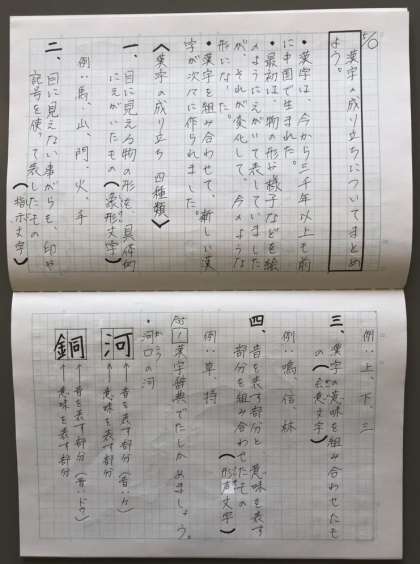 5/10
漢字の成り立ちについてまとめ
よう。
・漢字は、今から三千年以上も前
に中国で生まれた。
・最初は、物の形や様子などを絵
のようにえがいて表していました
が、それが変化して、今のような
形になった。
・漢字を組み合わせて、新しい漢
字が次々に作られました。
〈漢字の成り立ち 四種類〉
一、目に見える物の形を、具体的
にえがいたもの(象形文字)
例:馬、山、門、火、手
二、目に見えない事がらを、印や
記号を使って表したもの
(指示文字)
例:上、下、三
三、漢字の意味を組み合わせたも
の(会意文字)
例:鳴、信、林
四、音を表す部分と意味を表す
部分を組み合わせたもの
(形声文字)
例:草、持
漢字辞典でたしかめましょう。
・河口の河
かこう
河
←音を表す部分(音:カ)
←意味を表す部分
銅
←音を表す部分(音:ドウ)
←意味を表す部分